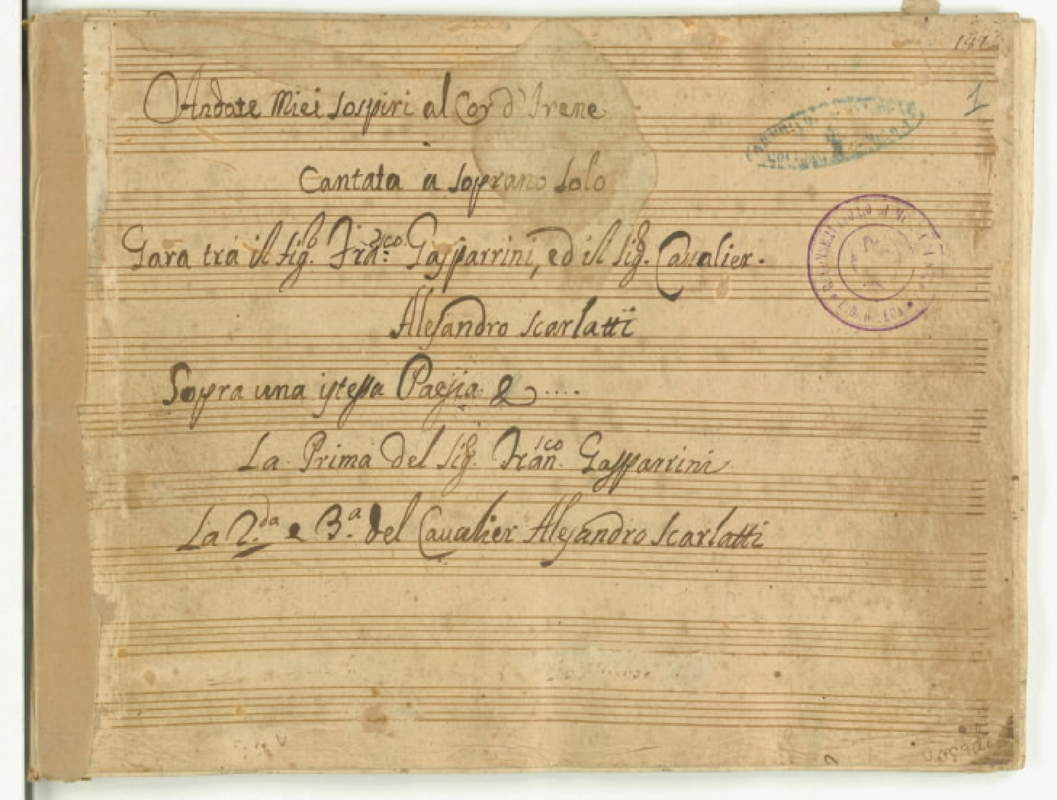 Andate Miei sospiri al Cor d'Irene
Cantata à soprano solo
Gara trà il Sig.r Fran.co Gasparrini, ed il Sig.r Cavalier.
Alesandro Scarlatti
Sopra una istessa Paesia & ....
La Prima del Sig.r Fran.co Gasparrini
La 2.da e 3.a del Cavalier Alesandro Scarlatti
1